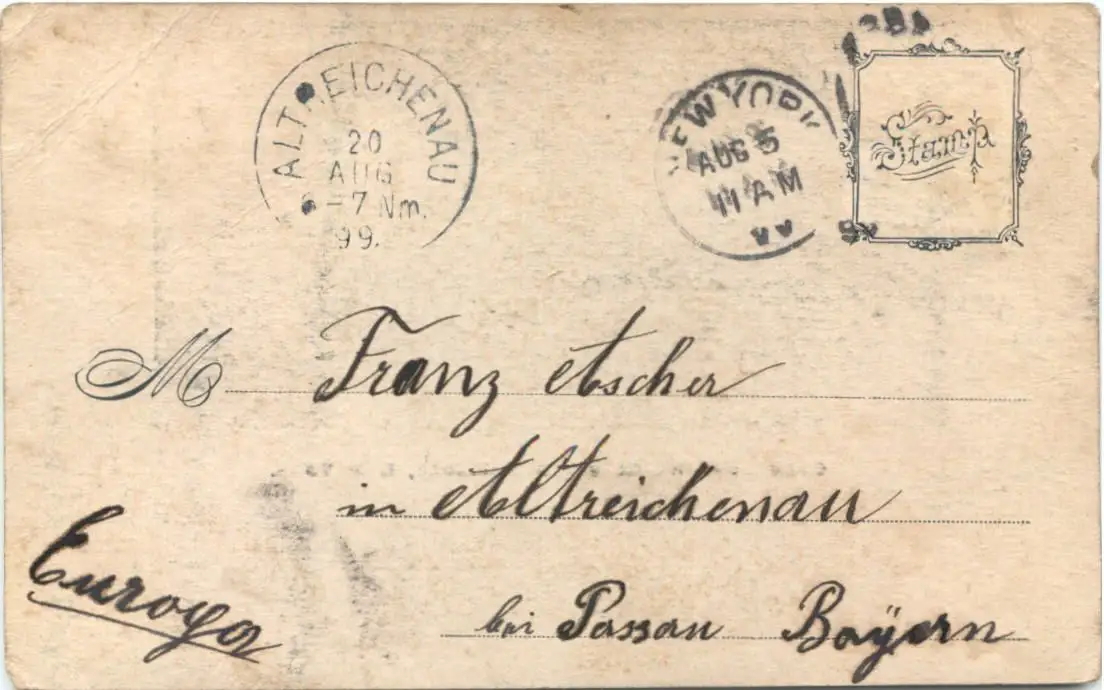 ALTREICHENAU
20
AUG
6-7 Nm.
99.
NEW YORK
AUG 5
11 AM
Stamp
M Franz Ascher
in Altreichenau
bei Passau Bayern
Europa